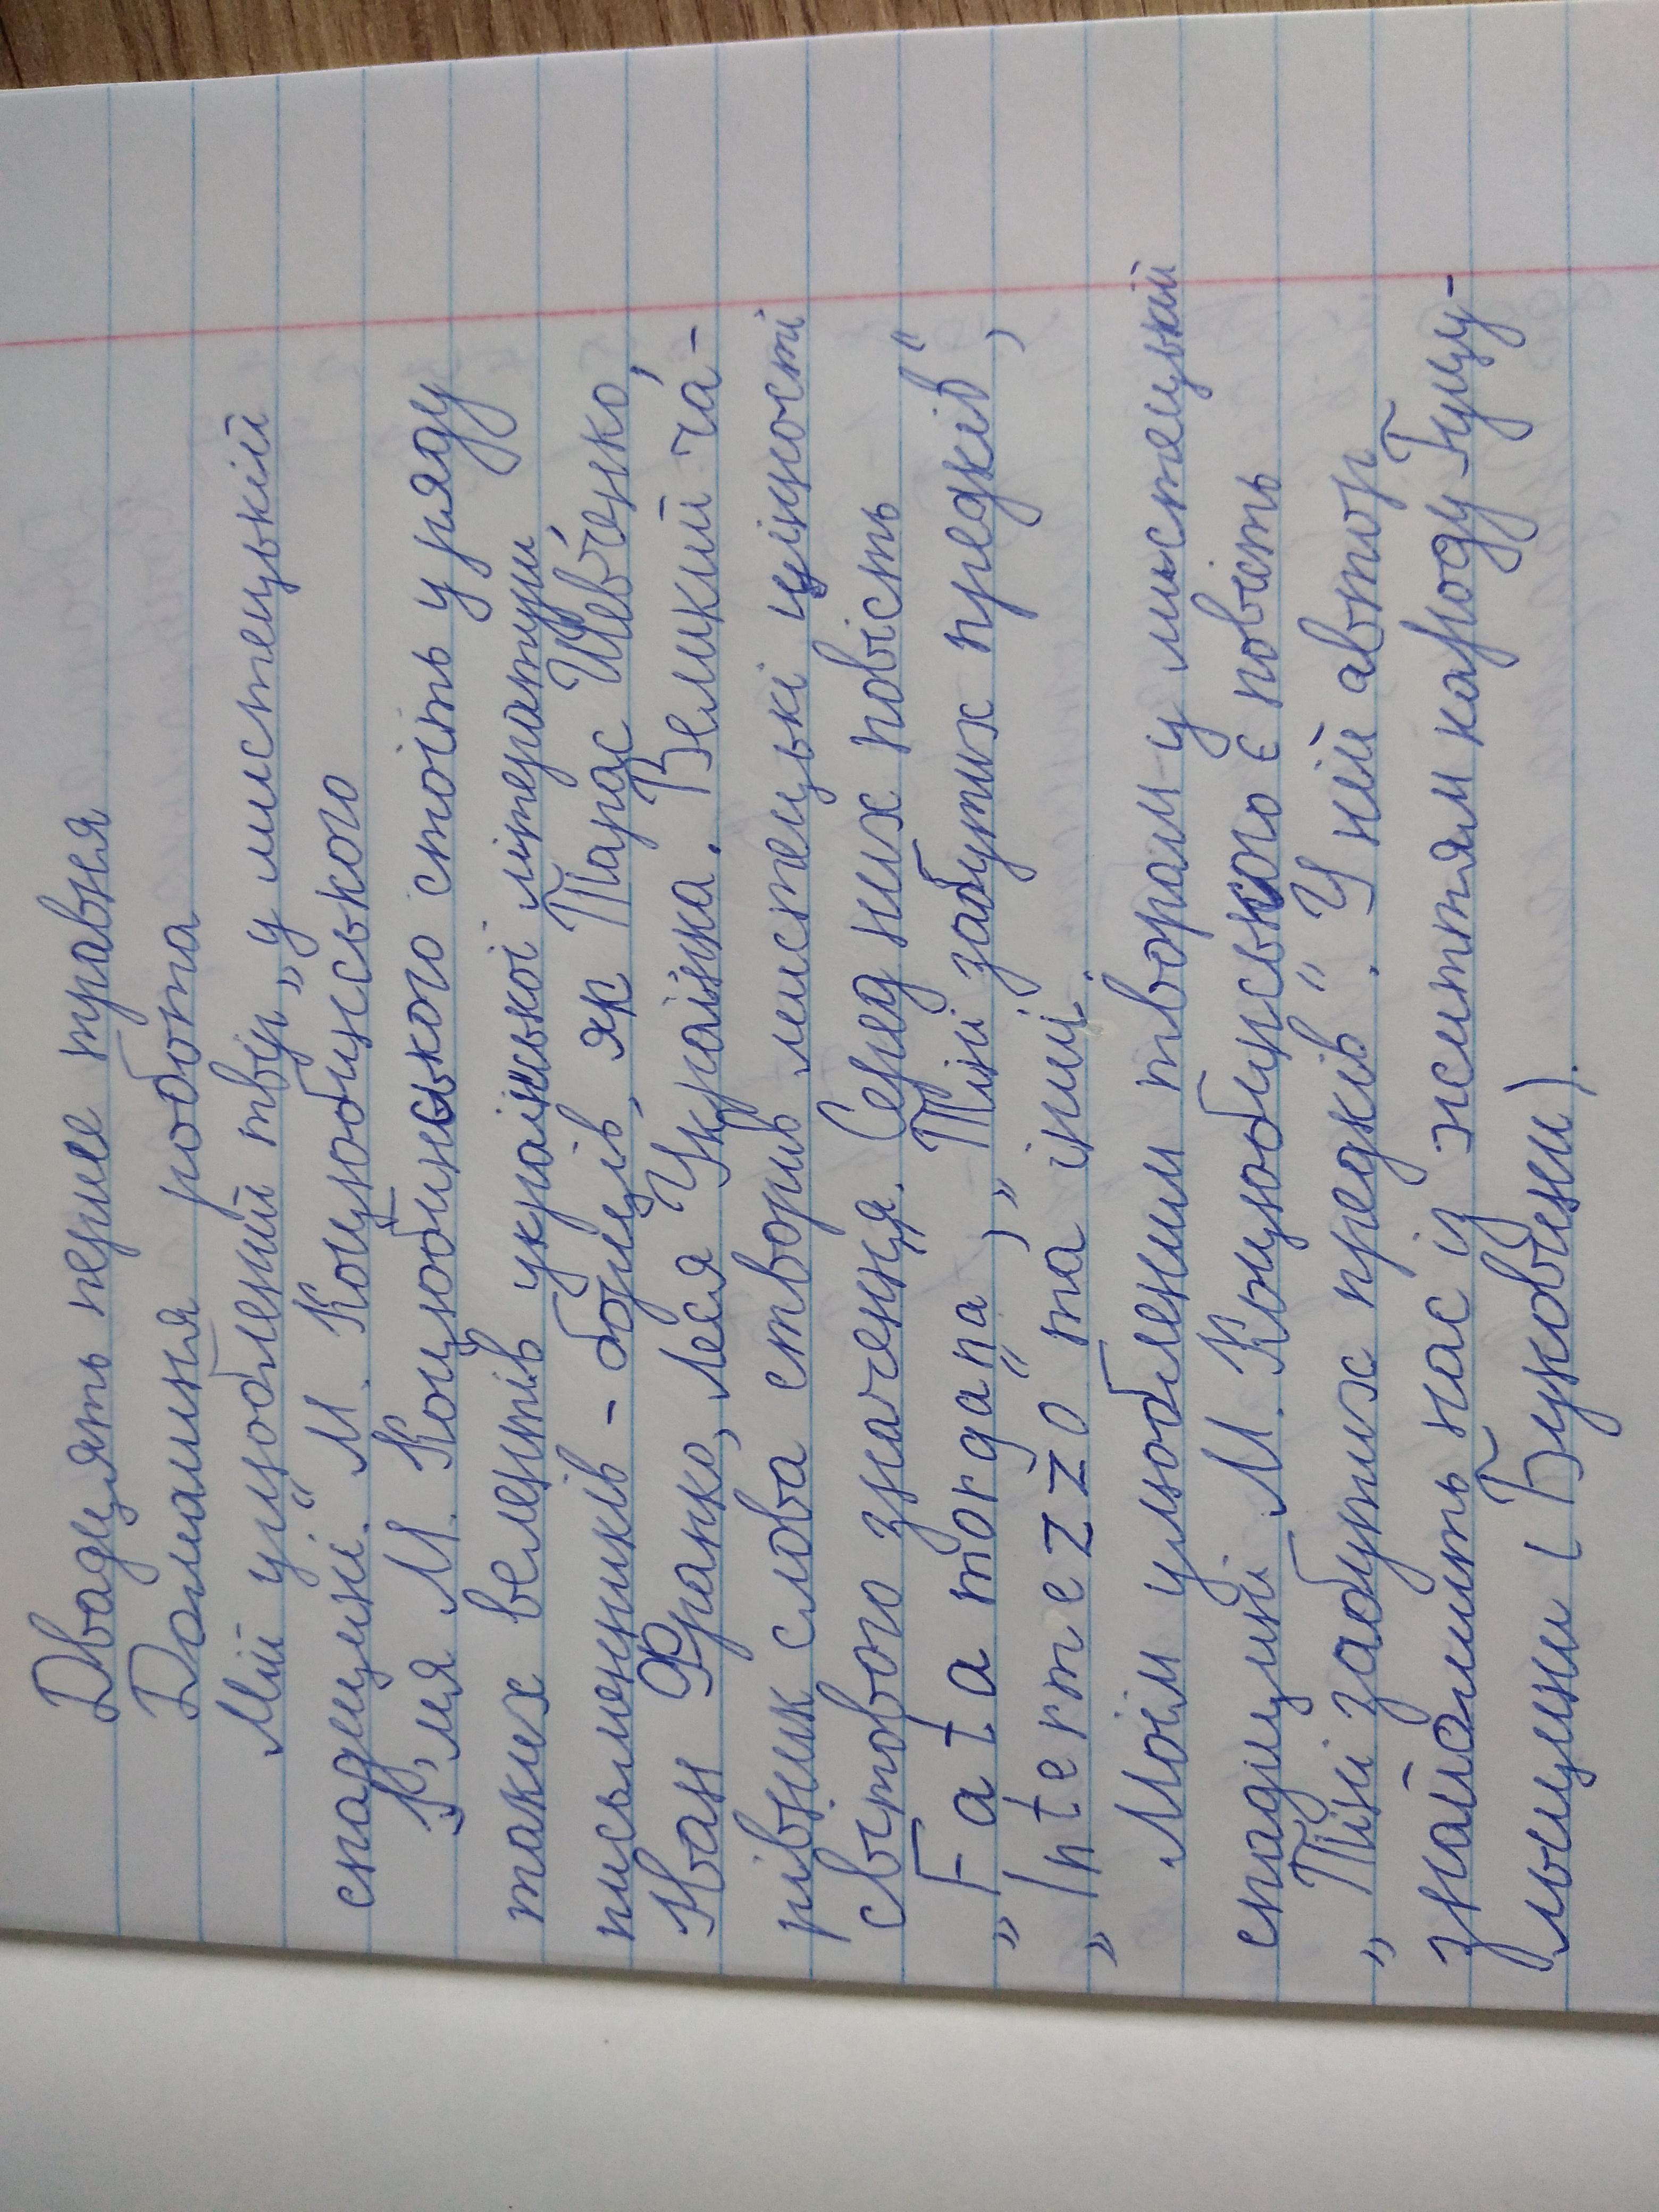 Двадцять перше травня
Домашня робота
Мій улюблений твір „у мистецькій
спадщині" М. Коцюбинського
Ім'я М. Коцюбинського стоїть у ряду
таких велетнів української літератури
письменників - борців, як Тарас Шевченко,
Іван Франко, Леся Українка. Великий ча-
рівник слова створив мистецькі цінності
світового значення. Серед них повість
„Fata morgana", „Тіні забутих предків",
„Intermezzo" та інші.
Моїм улюбленим твором у мистецькій
спадщині М. Коцюбинського є повість
„Тіні забутих предків". У ній автор
знайомить нас із життям народу Гуцу-
льщини (Буковини).